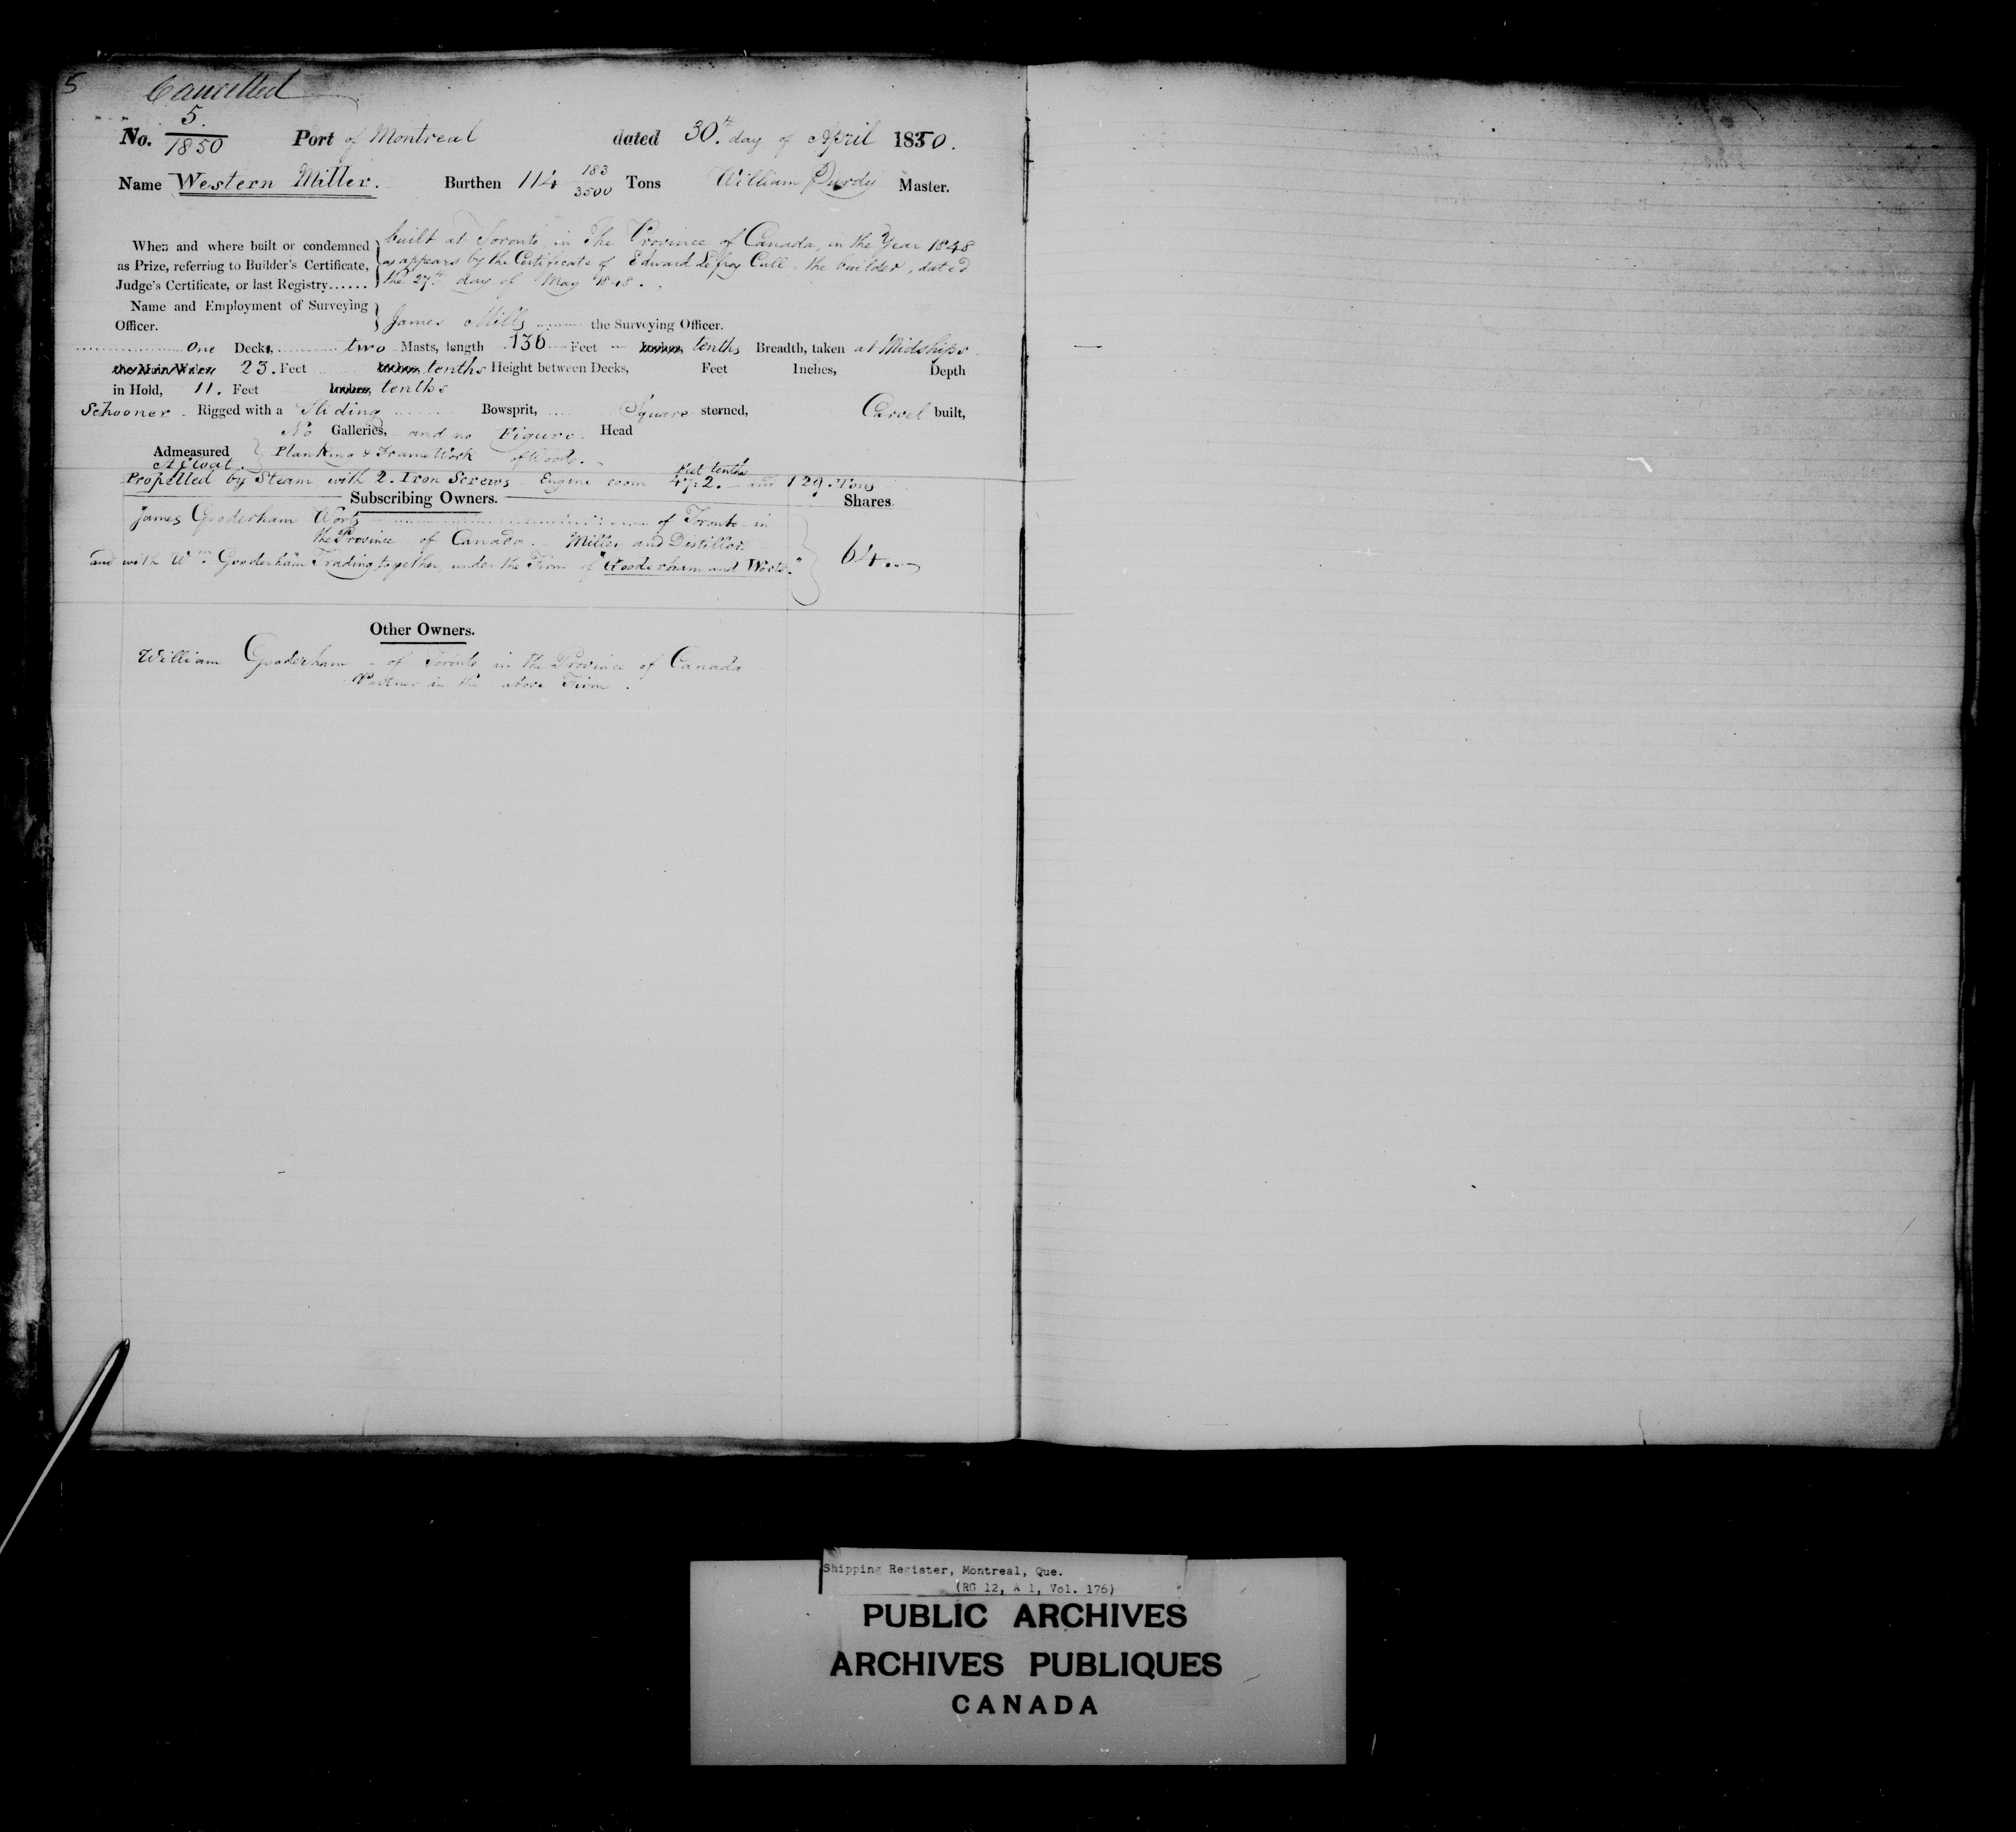 5
Cancelled
No. 5. / 1850 Port of Montreal dated 30th day of April 1850.
Name Western Miller. Burthen 114 183/3500 Tons William Purdy Master.
When and where built or condemned as Prize, referring to Builder's Certificate, Judge's Certificate, or last Registry......
built at Toronto in The Province of Canada, in the Year 1848
as appears by the Certificate of Edward Lefroy Cull, the builder, dated
the 27th day of May 1848.
Name and Employment of Surveying Officer.
James Mills the Surveying Officer.
One Decks, two Masts, length 136 Feet Inches, tenths Breadth, taken at Midships
the Main Wales 23. Feet Inches, tenths Height between Decks, Feet Inches, Depth
in Hold, 11. Feet Inches, tenths
Schooner. Rigged with a Sliding Bowsprit, Square sterned, Carvel built,
No Galleries, and no Figure. Head
Admeasured Afloat. Planking & Frame Work of Wood.
Feet tenths
Propelled by Steam with 2. Iron Screws Engine room 47.2. and 129. Tons
Subscribing Owners. Shares
James Gooderham Worts of Toronto in
the Province of Canada. Miller and Distiller
and with Wm. Gooderham Trading together, under the Firm of "Gooderham and Worts." 64..
Other Owners.
William Gooderham - of Toronto in the Province of Canada
Partner in the above Firm.
Shipping Register, Montreal, Que.
(RG 12, A 1, Vol. 176)
PUBLIC ARCHIVES
ARCHIVES PUBLIQUES
CANADA